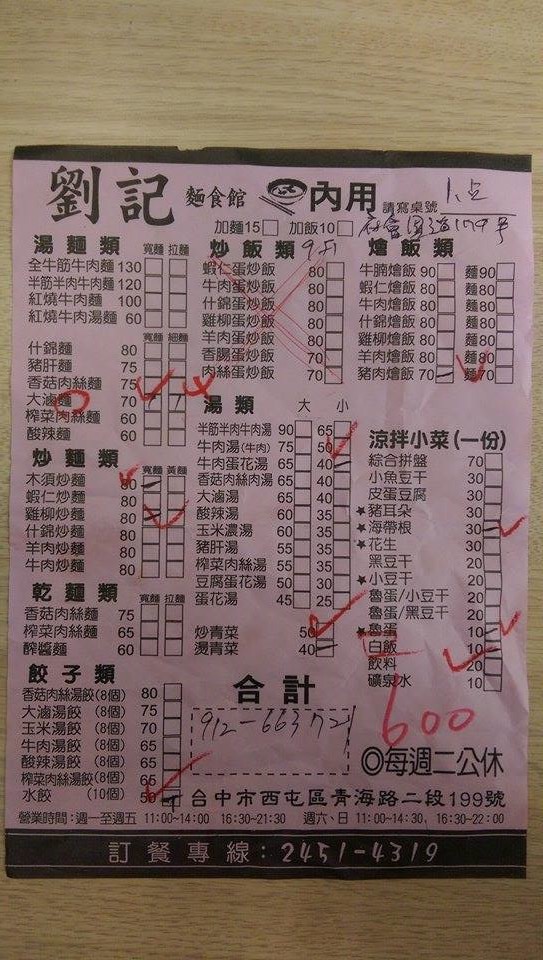 劉記 麵食館 內用 請寫桌號
加麵15□ 加飯10□
湯麵類 寬麵 拉麵
全牛筋牛肉麵 130
半筋半肉牛肉麵 120
紅燒牛肉麵 100
紅燒牛肉湯麵 60
寬麵 細麵
什錦麵 80
豬肝麵 75
香菇肉絲麵 75
大滷麵 70
榨菜肉絲麵 60
酸辣麵 60
炒麵類 寬麵 黃麵
木須炒麵 80
蝦仁炒麵 80
雞柳炒麵 80
什錦炒麵 80
羊肉炒麵 80
牛肉炒麵 80
乾麵類 寬麵 拉麵
香菇肉絲麵 75
榨菜肉絲麵 65
酢醬麵 60
餃子類
香菇肉絲湯餃 (8個) 80
大滷湯餃 (8個) 75
玉米湯餃 (8個) 70
牛肉湯餃 (8個) 65
酸辣湯餃 (8個) 65
榨菜肉絲湯餃 (8個) 65
水餃 (10個) 50
炒飯類
蝦仁蛋炒飯 80
牛肉蛋炒飯 80
什錦蛋炒飯 80
雞柳蛋炒飯 80
羊肉蛋炒飯 80
香腸蛋炒飯 70
肉絲蛋炒飯 70
湯類 大 小
半筋半肉牛肉湯 90 65
牛肉湯(牛肉) 75 50
牛肉蛋花湯 65 40
香菇肉絲肉湯 65 40
大滷湯 65 40
酸辣湯 60 35
玉米濃湯 60 35
豬肝湯 55 35
榨菜肉絲湯 55 35
豆腐蛋花湯 50 30
蛋花湯 45 25
炒青菜 50
燙青菜 40
合計
912-663721
燴飯類
牛腩燴飯 90 麵90
蝦仁燴飯 80 麵80
牛肉燴飯 80 麵80
什錦燴飯 80 麵80
雞柳燴飯 80 麵80
羊肉燴飯 80 麵80
豬肉燴飯 70 麵70
涼拌小菜(一份)
綜合拼盤 70
小魚豆干 30
皮蛋豆腐 30
★豬耳朵 30
★海帶根 30
★花生 30
黑豆干 20
★小豆干 20
魯蛋/小豆干 20
魯蛋/黑豆干 20
★魯蛋 10
白飯 10
飲料 20
礦泉水 10
600
◎每週二公休
台中市西屯區青海路二段199號
營業時間：週一至週五 11:00~14:00 16:30~21:30 週六、日 11:00~14:30, 16:30~22:00
訂餐專線：2451-4319